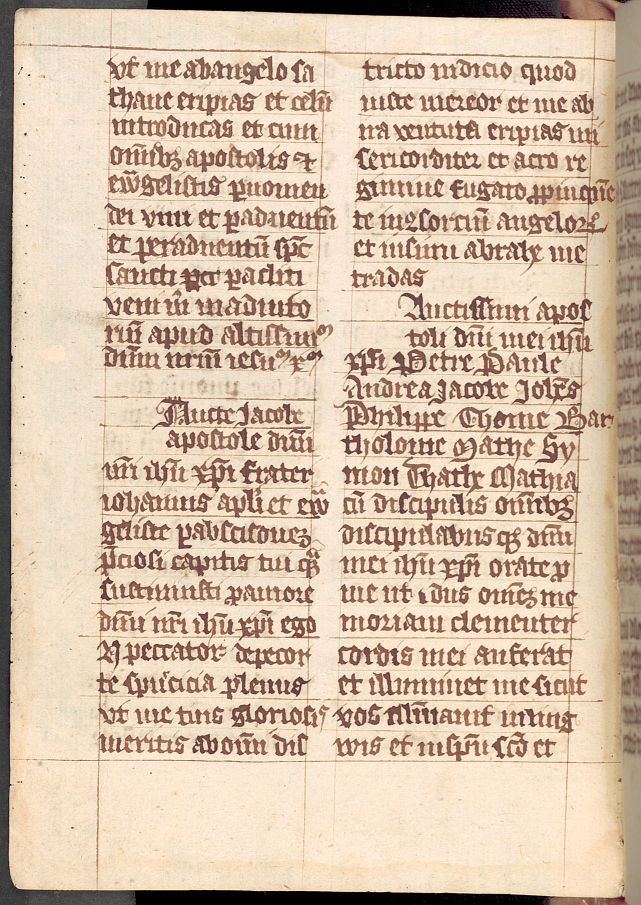 vt me ab angelo sa
thane eripias et celū
introducas et cum
om̄ibꝫ apostolis et
ew̄gelistis p nomen
dei viui et p aduentū
et per aduentū sp̄c
sancti pacliti
veni in adiuto
riū apud altissimū
dn̄m nr̄m iesum xp̄m
Sancte Jacobe
apostole dn̄i
nr̄i ihū xp̄i frater
iohannis apl̄i et ew̄
geliste p abscisionez
p̄ciosi capitis tui q̄
sustinuisti p amore
dn̄i nr̄i ihū xp̄i ego
N peccator depcor
te spurcicia plenus
vt me tuis gloriosis
meritis ab om̄i dis
tricto iudicio quod
iuste mereor et me ab
ira ventura eripias mi
sericorditer et acto re
gimine fugato ꝓpinque
te in ꝯsorciū angelorꝝ
et in sinu abrahe me
tradas
Sanctissimi apos
toli dn̄i mei ihū
xp̄i Petre Paule
Andrea Jacobe Joh̄es
Philippe Thome Bar
tholome Mathe Sy
mon Thathe Mathia
cū discipulis om̄ibꝫ
discipulabusqꝫ dn̄i
mei ihū xp̄i orate ꝓ
me ut dn̄s om̄ez me
moriam clementer
cordis mei auferat
et illuminet me sicut
vos illūinauit in ung
wis et in sp̄u sc̄o et